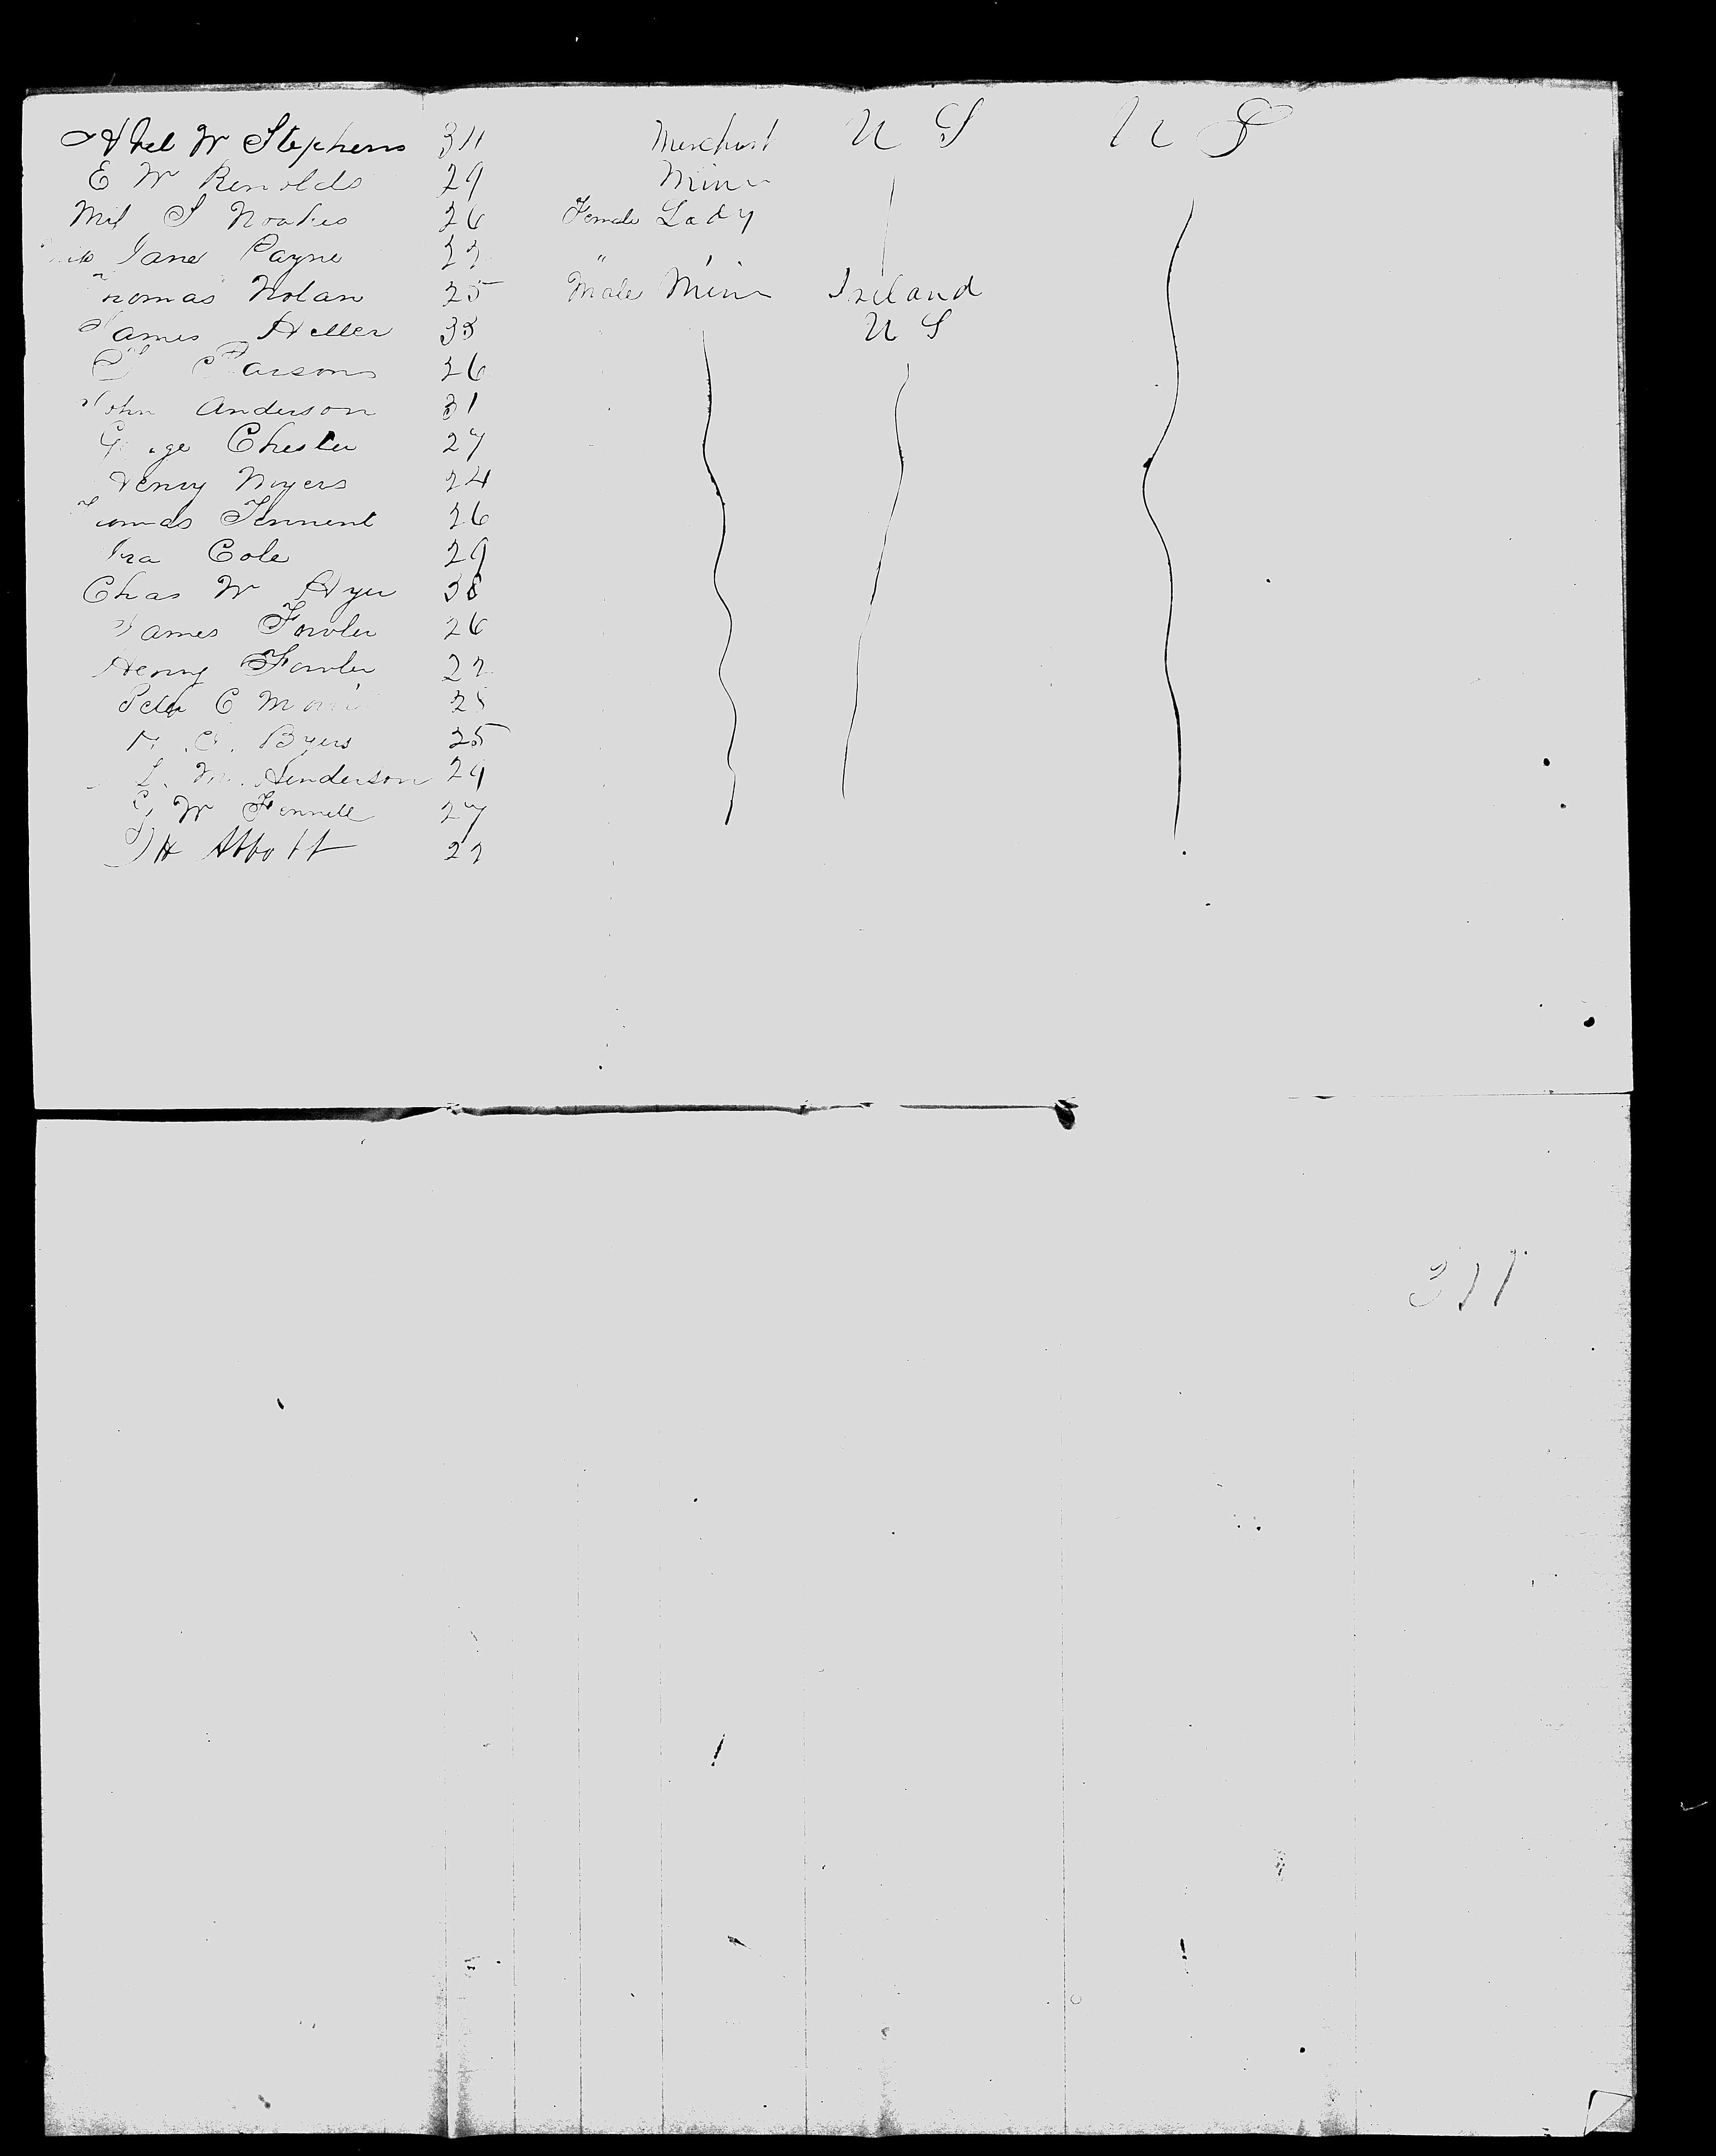 Abel W Stephens 34 Merchant U S U S
E W Renolds 29 Miner
Mrs S Noakes 26 Female Lady
Jane Payne 22 "
Thomas Nolan 25 Male Miner Ireland
James Heller 33 U S
Parsons 26
John Anderson 31
George Chester 27
Henry Noyers 24
Thomas Tennent 26
Ira Cole 29
Chas W Hyer 38
James Fowler 26
Henry Fowler 22
Peter C 28
Byers 25
L. M. Henderson 29
G W Fennell 27
H Abbott 22
311